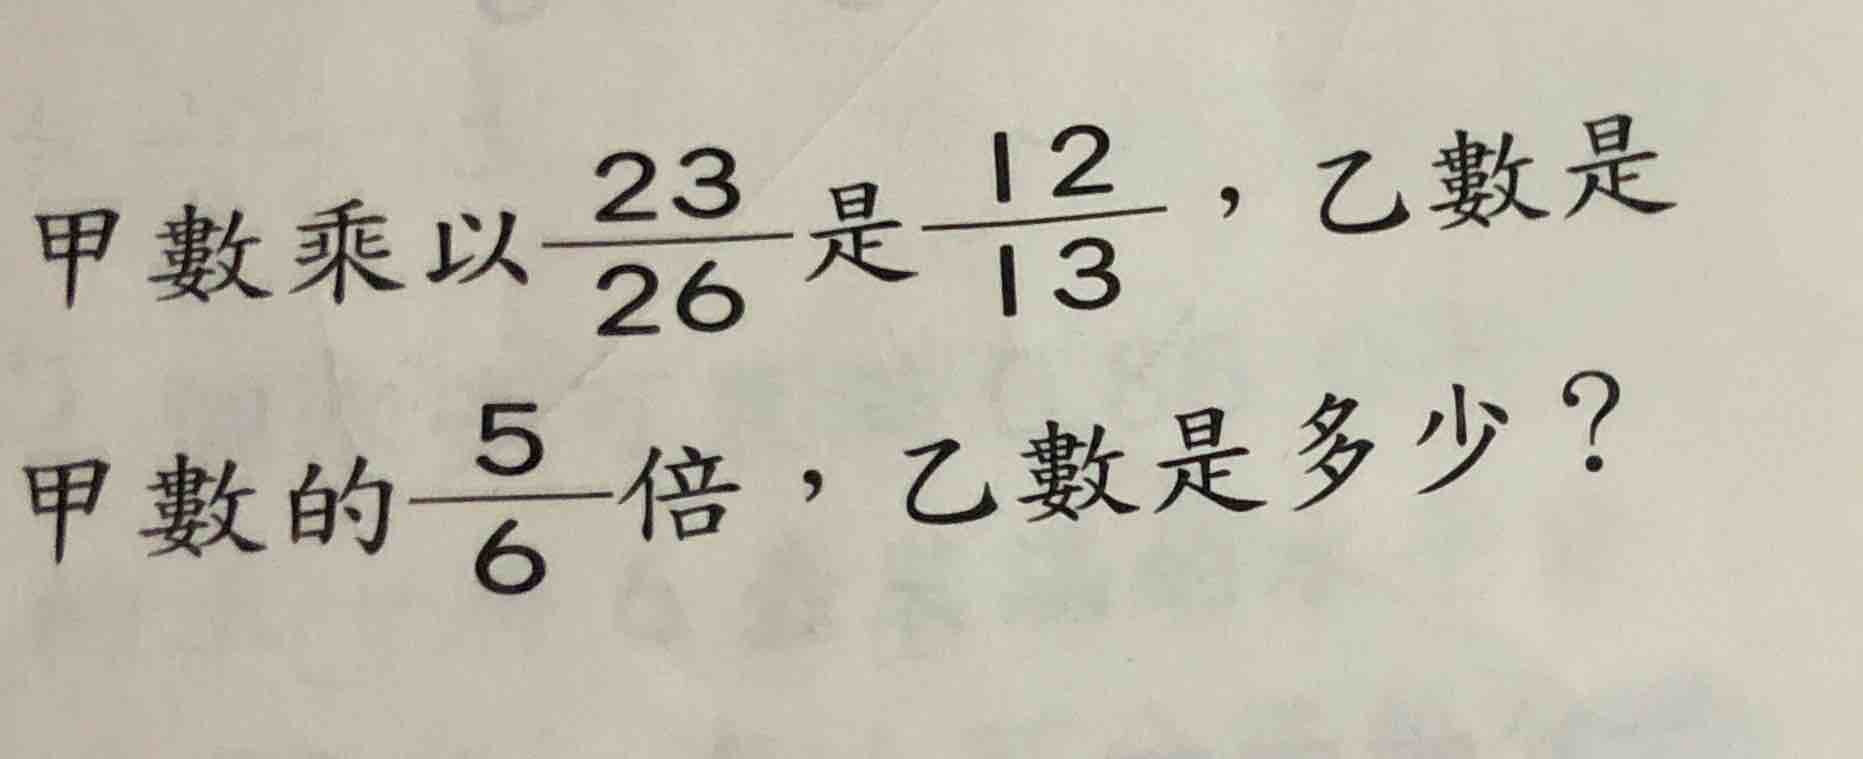 甲數乘以23/26是12/13，乙數是
甲數的5/6倍，乙數是多少？